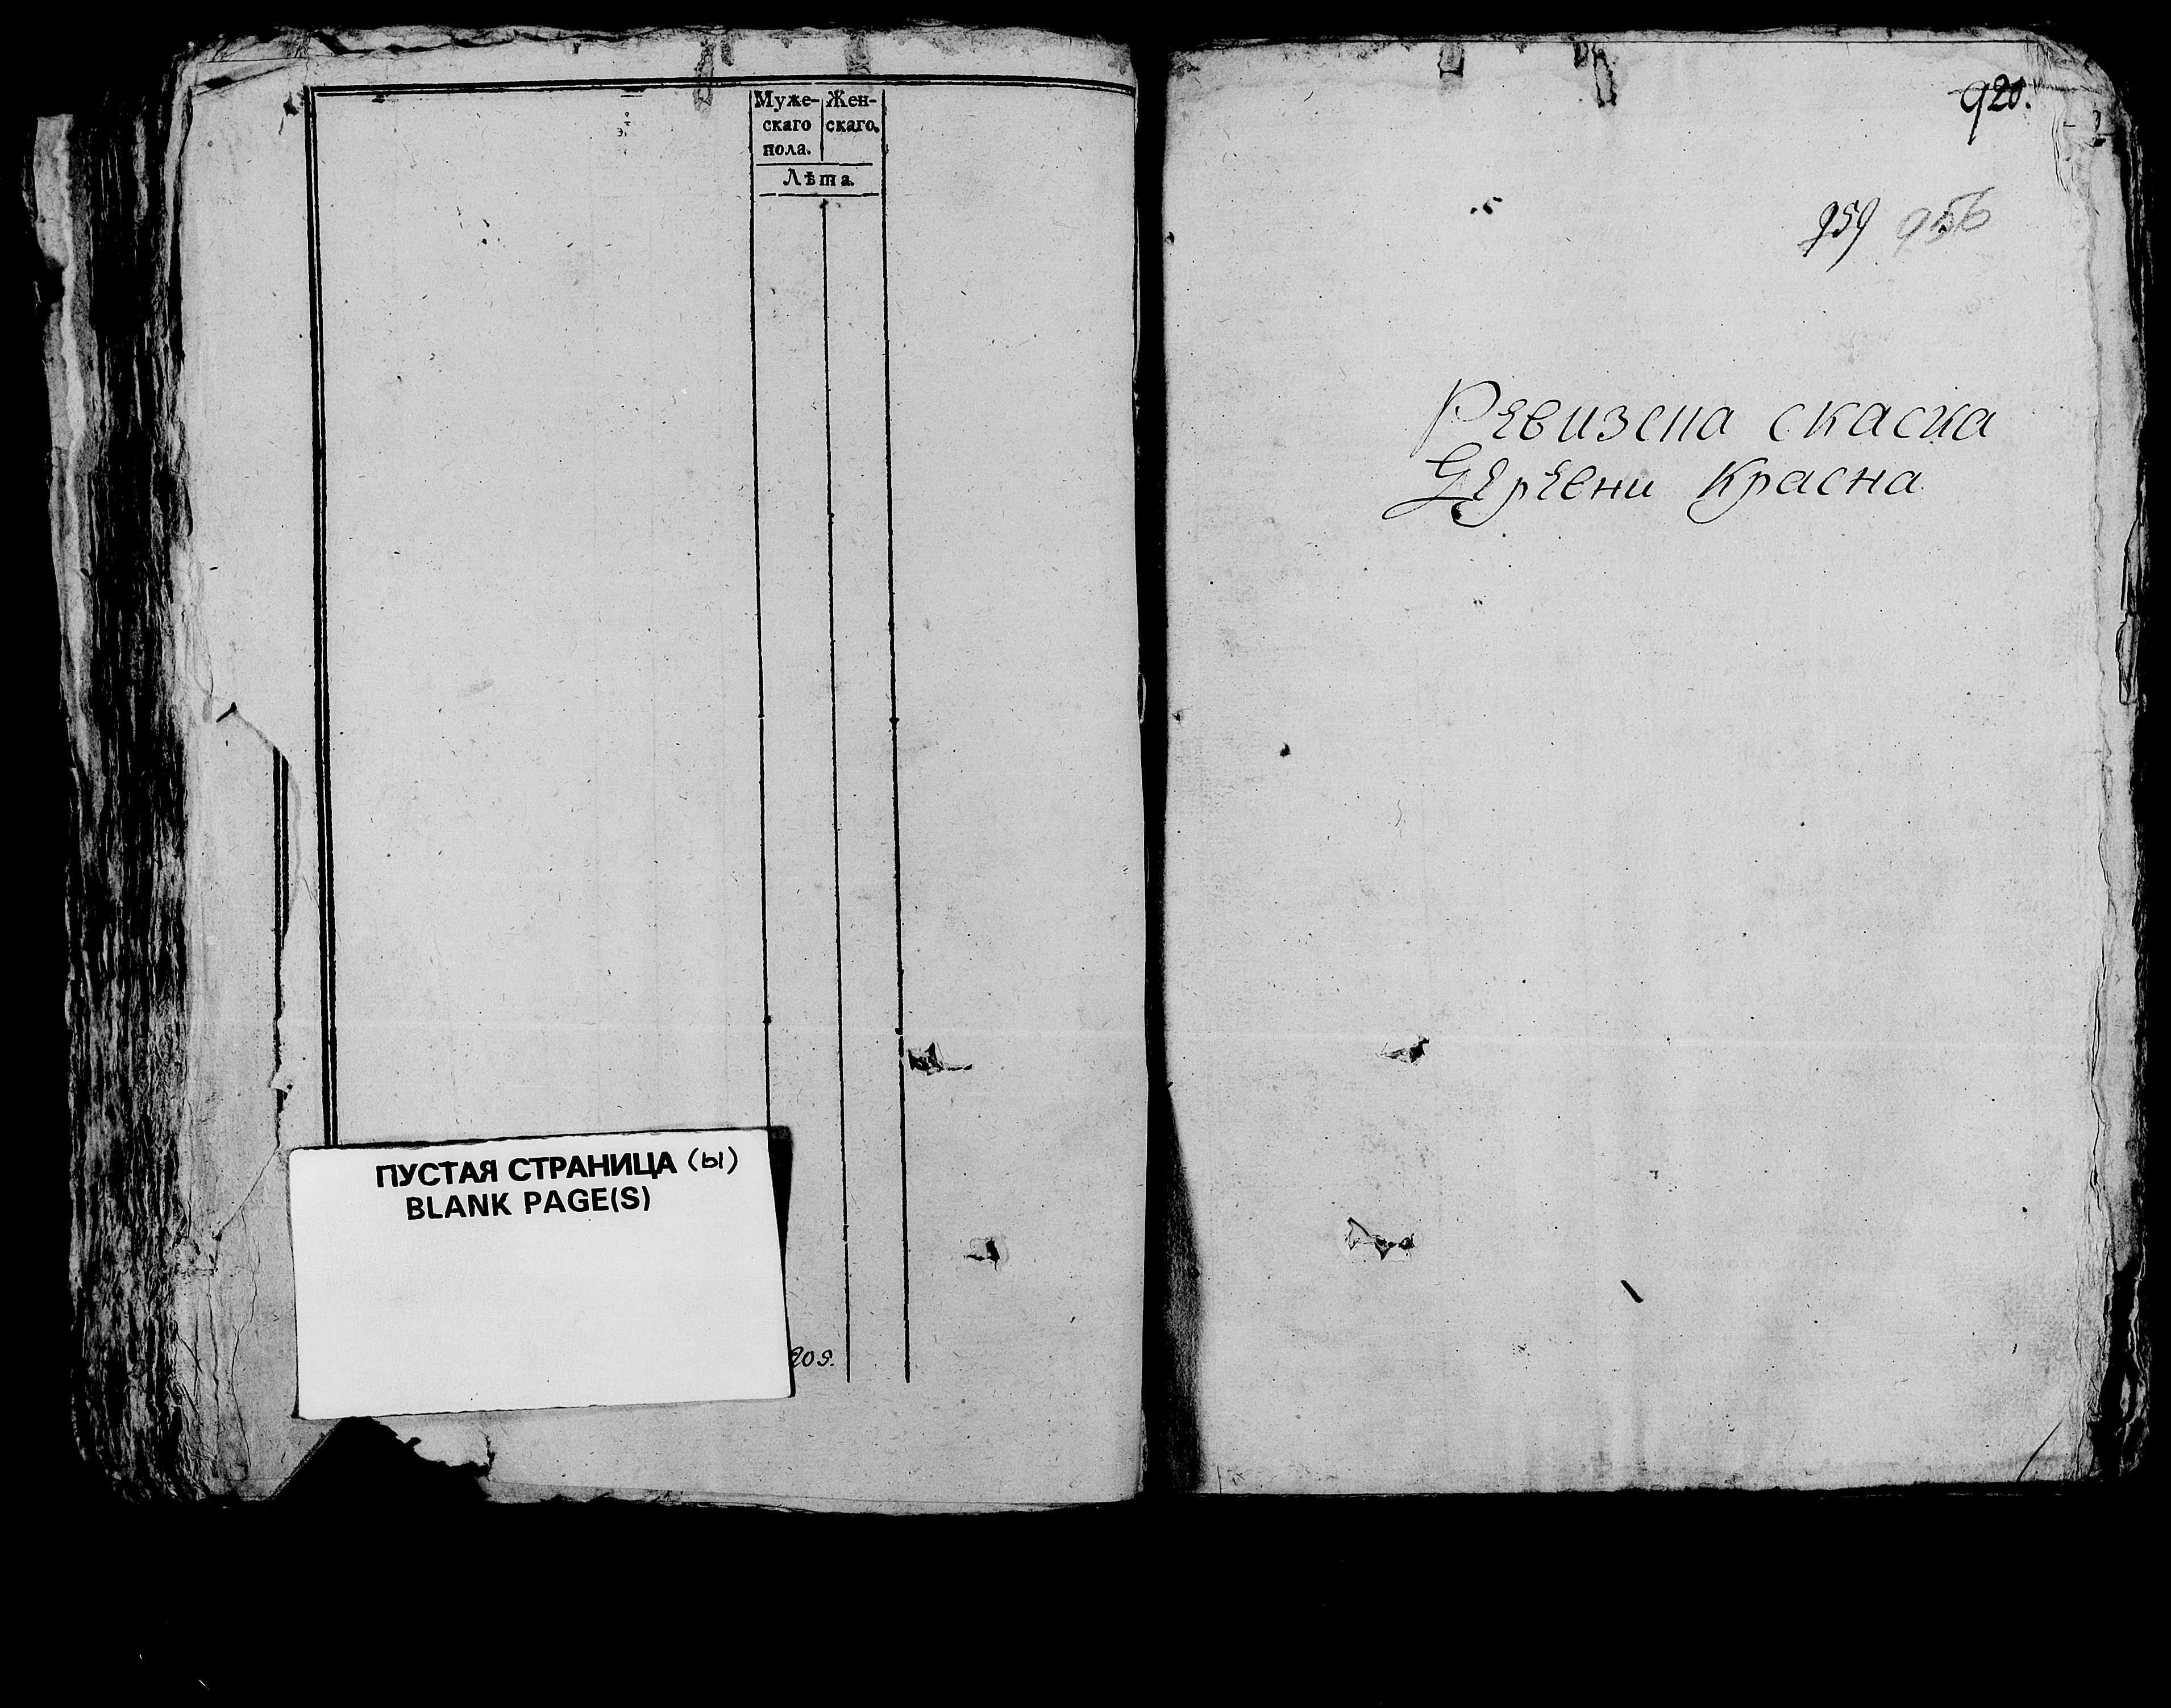 Муже- Жен-
скаго скаго.
пола.
Лѣта.
ПУСТАЯ СТРАНИЦА (ы)
BLANK PAGE(S)
920.
959 956
Ревизспа скаска
Деревни Красна